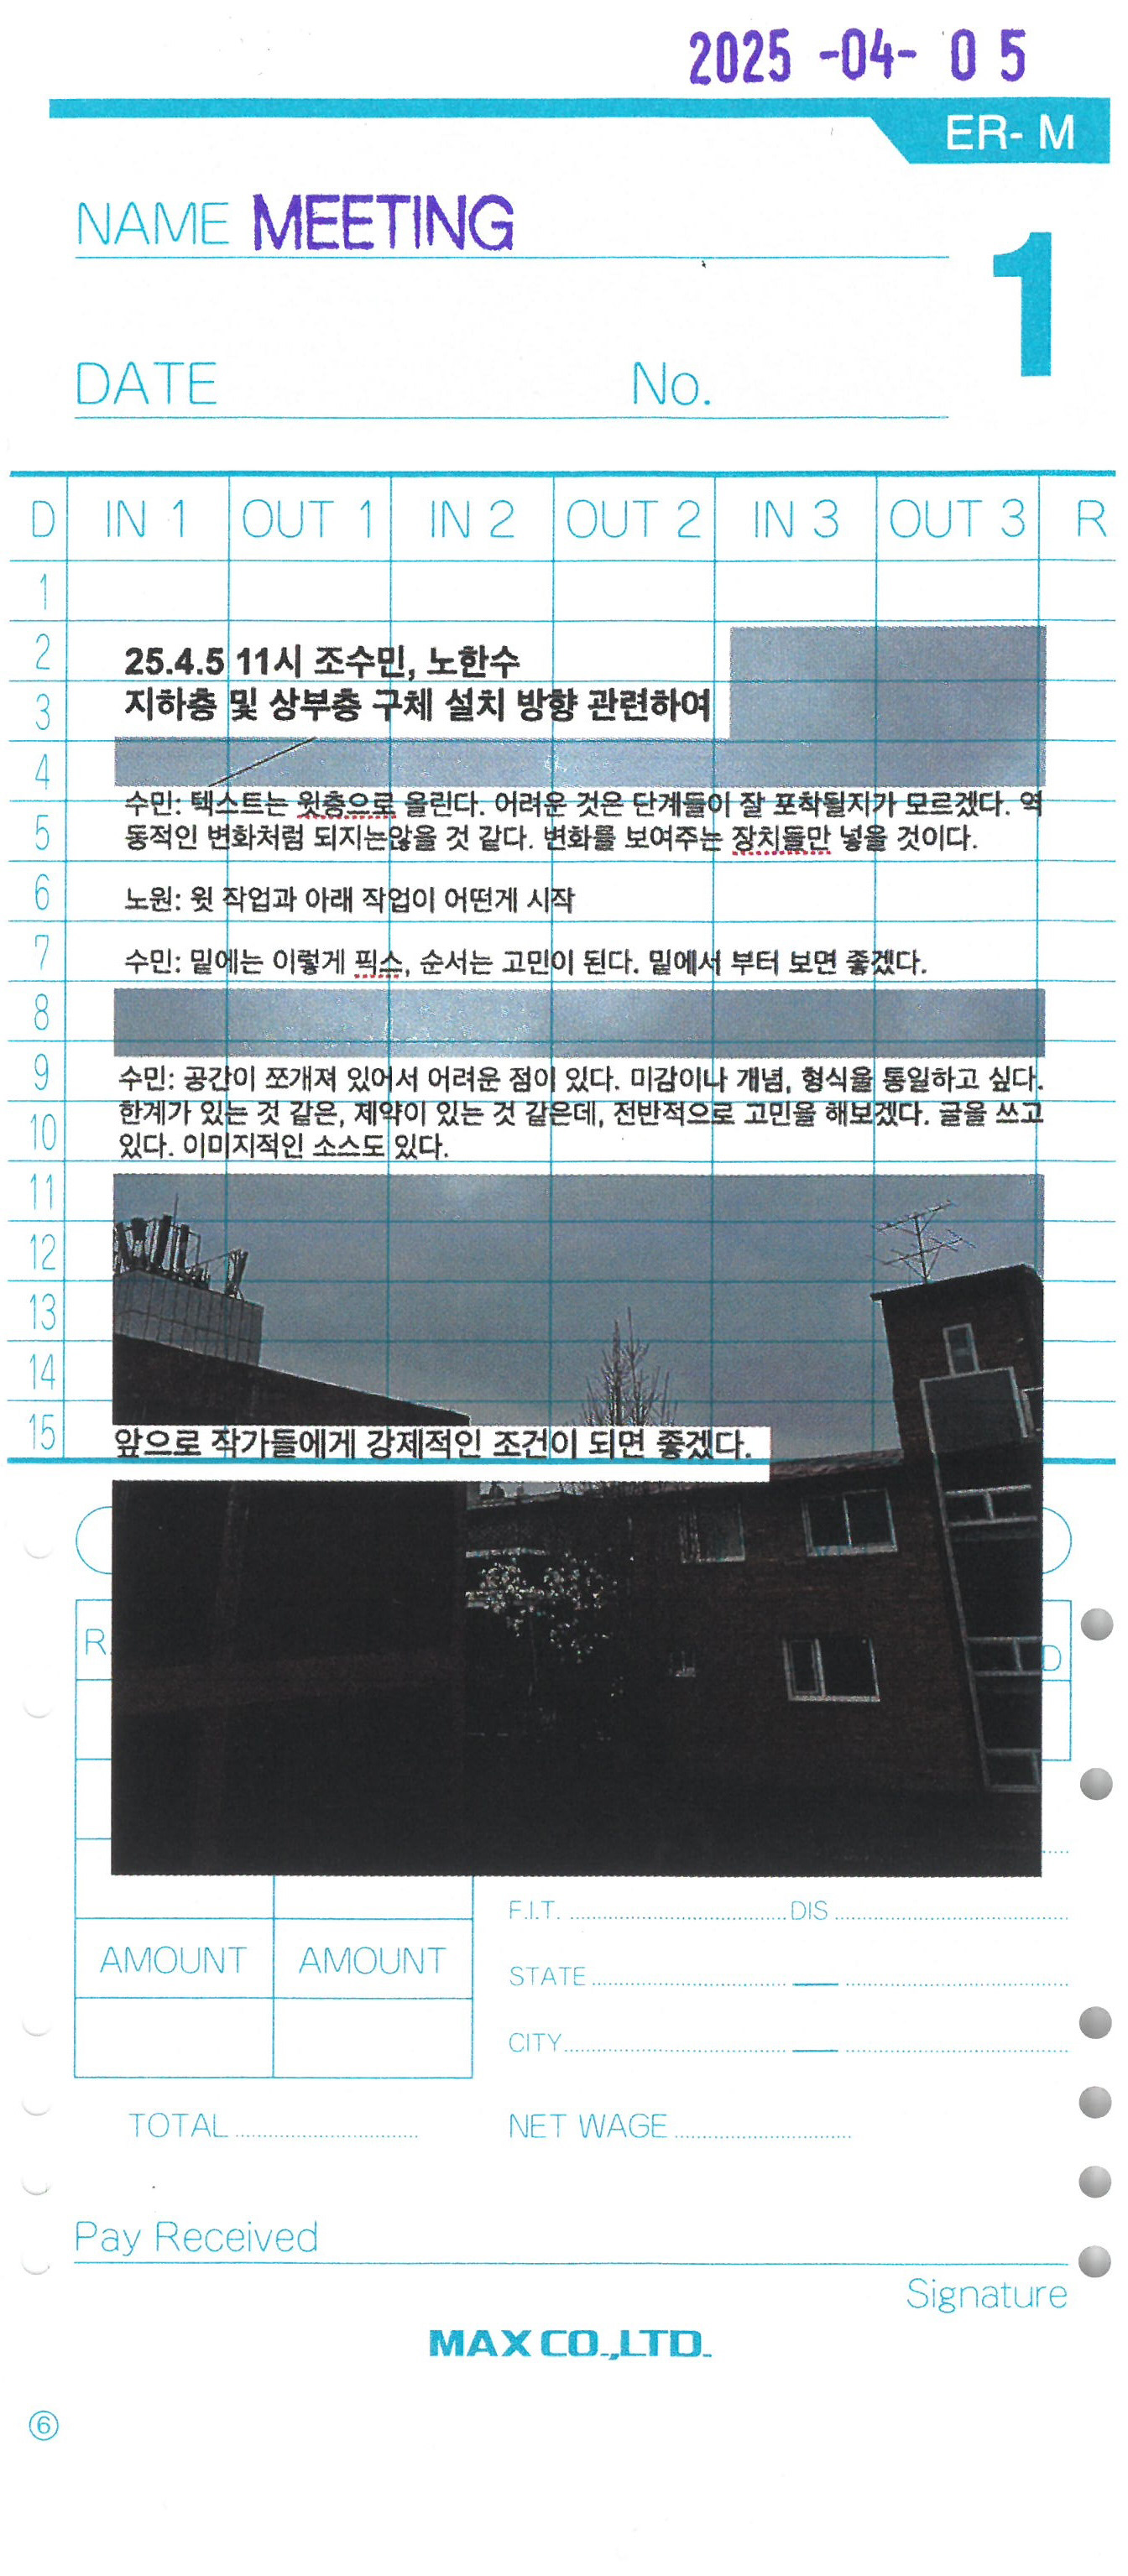 2025 -04- 05
ER- M
NAME MEETING
1
DATE No.
D IN 1 OUT 1 IN 2 OUT 2 IN 3 OUT 3 R
1
2
25.4.5 11시 조수민, 노한수
3
지하층 및 상부층 구체 설치 방향 관련하여
4
수민: 텍스트는 윗층으로 올린다. 어려운 것은 단계들이 잘 포착될지가 모르겠다. 역
5
동적인 변화처럼 되지는않을 것 같다. 변화를 보여주는 장치들만 넣을 것이다.
6
노원: 윗 작업과 아래 작업이 어떤게 시작
7
수민: 밑에는 이렇게 픽스, 순서는 고민이 된다. 밑에서 부터 보면 좋겠다.
8
9
수민: 공간이 쪼개져 있어서 어려운 점이 있다. 미감이나 개념, 형식을 통일하고 싶다.
10
한계가 있는 것 같은, 제약이 있는 것 같은데, 전반적으로 고민을 해보겠다. 글을 쓰고
있다. 이미지적인 소스도 있다.
11
12
13
14
15
앞으로 작가들에게 강제적인 조건이 되면 좋겠다.
R
D
F.I.T. DIS
AMOUNT AMOUNT
STATE
CITY
TOTAL NET WAGE
Pay Received
Signature
MAX CO.,LTD.
⑥